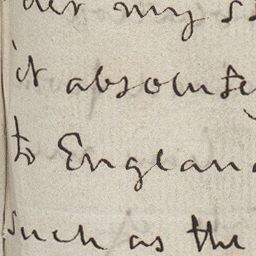 my
it absolutely
to England
such as the